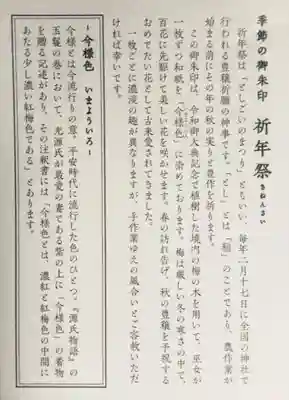 季節の御朱印 祈年祭
きねんさい
祈年祭は「としごいのまつり」ともいい、毎年二月十七日に全国の神社で
行われる豊穣祈願の神事です。「とし」とは「稲」のことであり、農作業が
始まる前にその年の秋の実りと豊作を祈ります。
この御朱印は、令和御大典記念で植樹した境内の梅の木を用いて、巫女が
一枚ずつ和紙を「今様色」に染めております。梅は厳しい冬の寒さの中で、
百花に先駆けて美しい花を咲かせます。春の訪れ告げ、秋の豊穣を予祝する
おめでたい花として古来愛されてきました。
一枚ごとに濃淡の趣が異なりますが、手作業ゆえの風合いとご容赦いただ
ければ幸いです。
~今様色 いまよういろ~
今様とは今流行りの意。平安時代に流行した色のひとつ。『源氏物語』の
玉鬘の巻において、光源氏が最愛の妻である紫の上に「今様色」の着物
を贈る記述があり、その注釈書には「今様色とは、濃紅と紅梅色の中間に
あたる少し濃い紅梅色である」とあります。